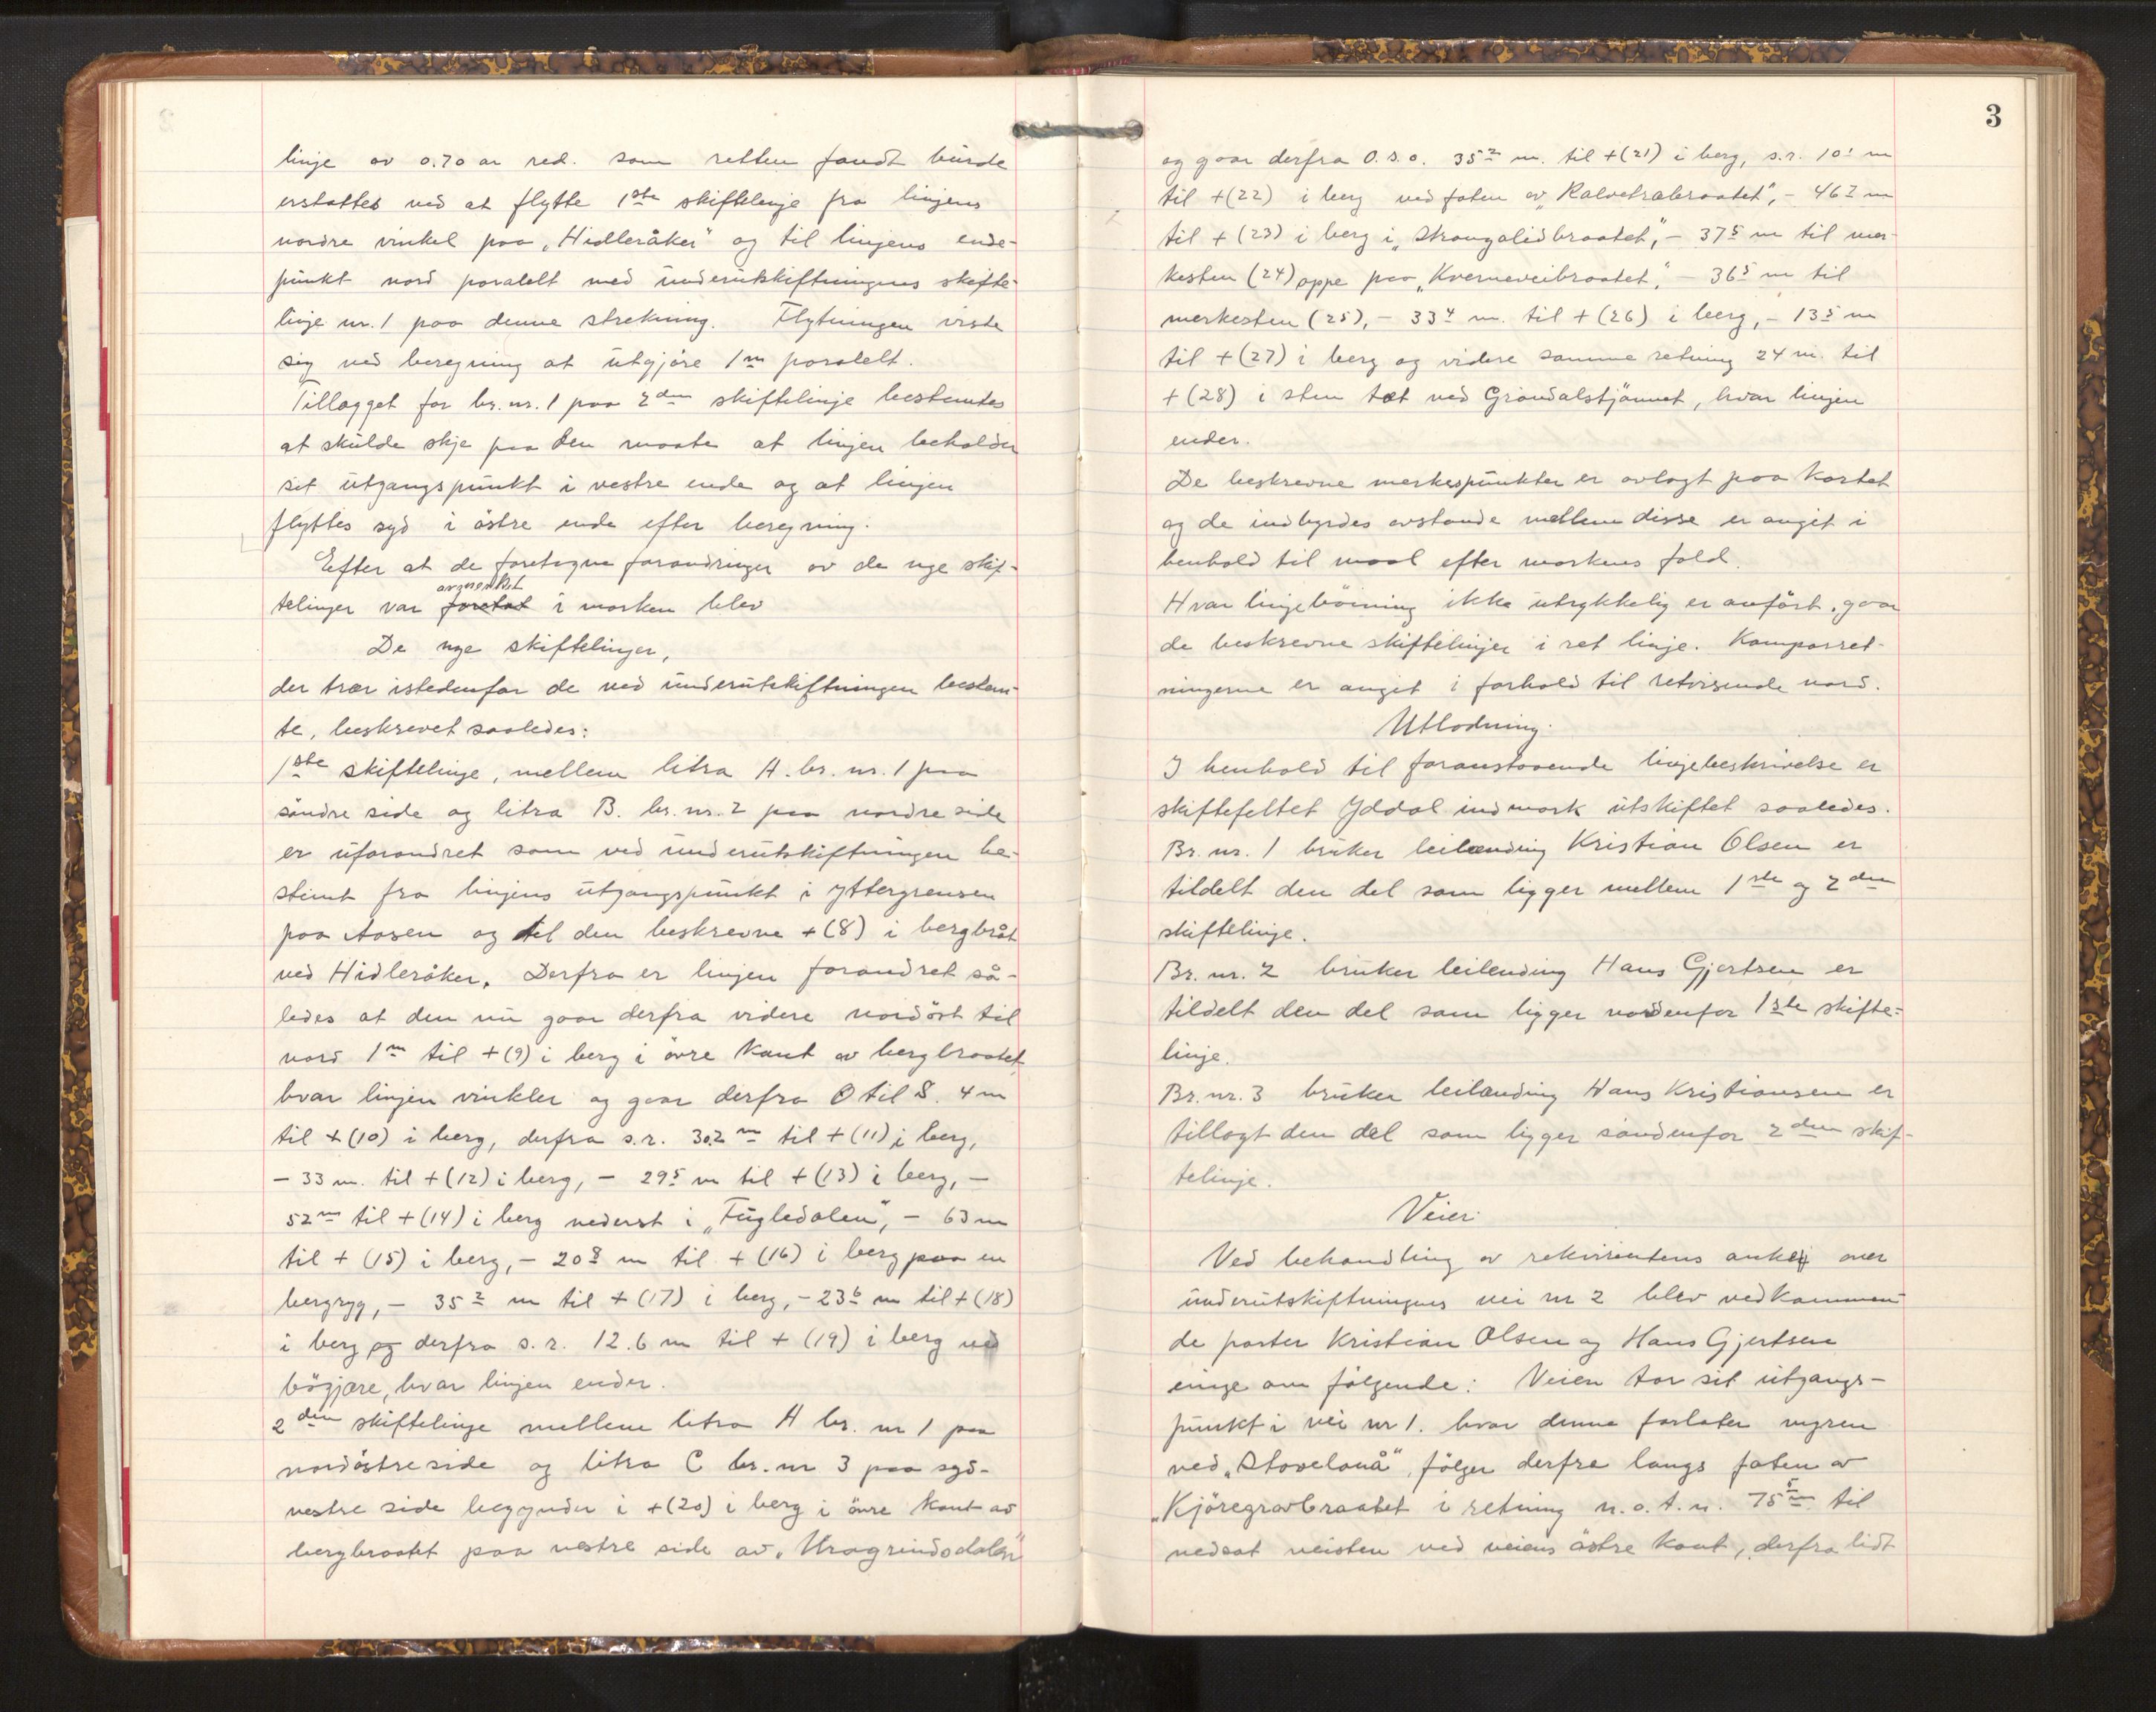 linje av 0.70 ar red. som retten fandt burde
erstattes ved at flytte 1ste skiftelinje fra linjens
nordre vinkel paa „Hidleråker" og til linjens ende-
punkt nord paralelt med underutskiftningens skifte-
linje nr. 1 paa denne strekning. Flytningen viste
sig ved beregning at utgjöre 1 m paralelt.
Tillægget for br. nr. 1 paa 2den skiftelinje bestemtes
at skulde skje paa den maate at linjen beholder
sit utgangspunkt i vestre ende og at linjen
flyttes syd i östre ende efter beregning.
Efter at de foretagne forandringer av de nye skif-
avmerket
telinjer var foretat i marken blev
De nye skiftelinjer,
der trær istedenfor de ved underutskiftningen bestem-
te, beskrevet saaledes:
1ste skiftelinje, mellem litra A. br. nr. 1 paa
söndre side og litra B. br. nr. 2 paa nordre side
er uforandret som ved underutskiftningen be-
stemt fra linjens utgangspunkt i yttergrensen
paa Aasen og til den beskrevne +(8) i bergbråt
ved Hidleråker. Derfra er linjen forandret så-
ledes at den nu gaar derfra videre nordöst til
nord 1 m til +(9) i berg i övre kant av bergbraatet
hvor linjen vinkler og gaar derfra O til S. 4 m
til +(10) i berg, derfra s.r. 30.2 m til +(11) i berg,
– 33 m. til +(12) i berg, – 29⁵ m til +(13) i berg, –
52 m til +(14) i berg nederst i „Fugledalen", – 63 m
til +(15) i berg, – 20⁸ m til +(16) i berg paa en
bergryg, – 35² m til +(17) i berg, – 23⁶ m til +(18)
i berg og derfra s.r. 12.6 m til +(19) i berg ved
bögjære, hvor linjen ender.
2den skiftelinje mellem litra A br. nr 1 paa
nordöstre side og litra C br. nr 3 paa syd-
vestre side begynder i +(20) i berg i övre kant av
bergbraatet paa vestre side av „Kragrindsdalen"
3
og gaar derfra O.s.o. 35² m. til +(21) i berg, s.r. 10¹ m
til +(22) i berg ved foten av „Kalvetræbraatet", – 46² m
til +(23) i berg i „Strangalidbraatet", – 37⁵ m til mer-
kesten (24) oppe paa „Kverneveibraatet", – 36⁵ m til
merkesten (25), – 33⁴ m. til +(26) i berg, – 13⁵ m
til +(27) i berg og videre samme retning 24 m. til
+(28) i sten tæt ved Gröndalstjönnet, hvor linjen
ender.
De beskrevne merkespunkter er avlagt paa kartet
og de indbyrdes avstande mellem disse er angit i
henhold til maal efter markens fald.
Hvor linjeböining ikke utrykkelig er anfört, gaar
de beskrevne skiftelinjer i ret linje. Kompasret-
ningerne er angit i forhold til retvisende nord.
Utlodning.
I henhold til foranstaaende linjebeskrivelse er
skiftefeltet Yddal indmark utskiftet saaledes.
Br. nr. 1 bruker leilænding Kristian Olsen er
tildelt den del som ligger mellem 1ste og 2den
skiftelinje.
Br. nr. 2 bruker leilending Hans Gjertsen er
tildelt den del som ligger nordenfor 1ste skifte-
linje.
Br. nr. 3 bruker leilænding Hans Kristiansen er
tillagt den del som ligger söndenfor 2den skif-
telinje.
Veier.
Ved behandling av rekvirentens anke over
underutskiftningens vei nr 2 blev vedkommen-
de parter Kristian Olsen og Hans Gjertsen
enige om fölgende: Veien tar sit utgangs-
punkt i vei nr 1. hvor denne forlater myren
ved „Stovelonå", fölger derfra langs foten av
„Kjöregravbraatet i retning n.o.t.n. 75⁵ m til
nedsat veisten ved veiens östre kant, derfra lidt